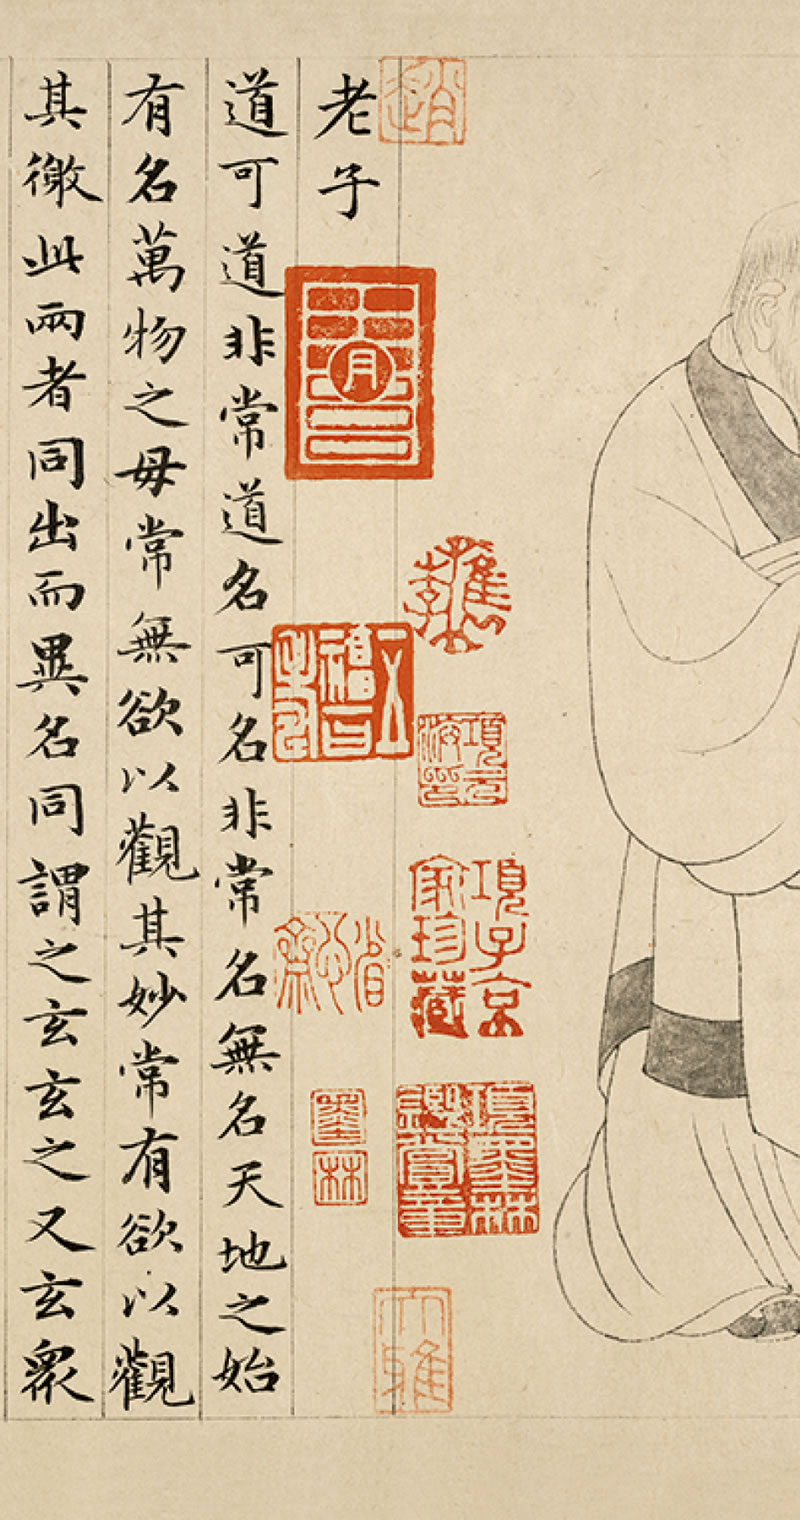 老子
道可道非常道名可名非常名無名天地之始
有名萬物之母常無欲以觀其妙常有欲以觀
其徼此兩者同出而異名同謂之玄玄之又玄衆
項子京家珍藏
項墨林鑑賞章
墨林